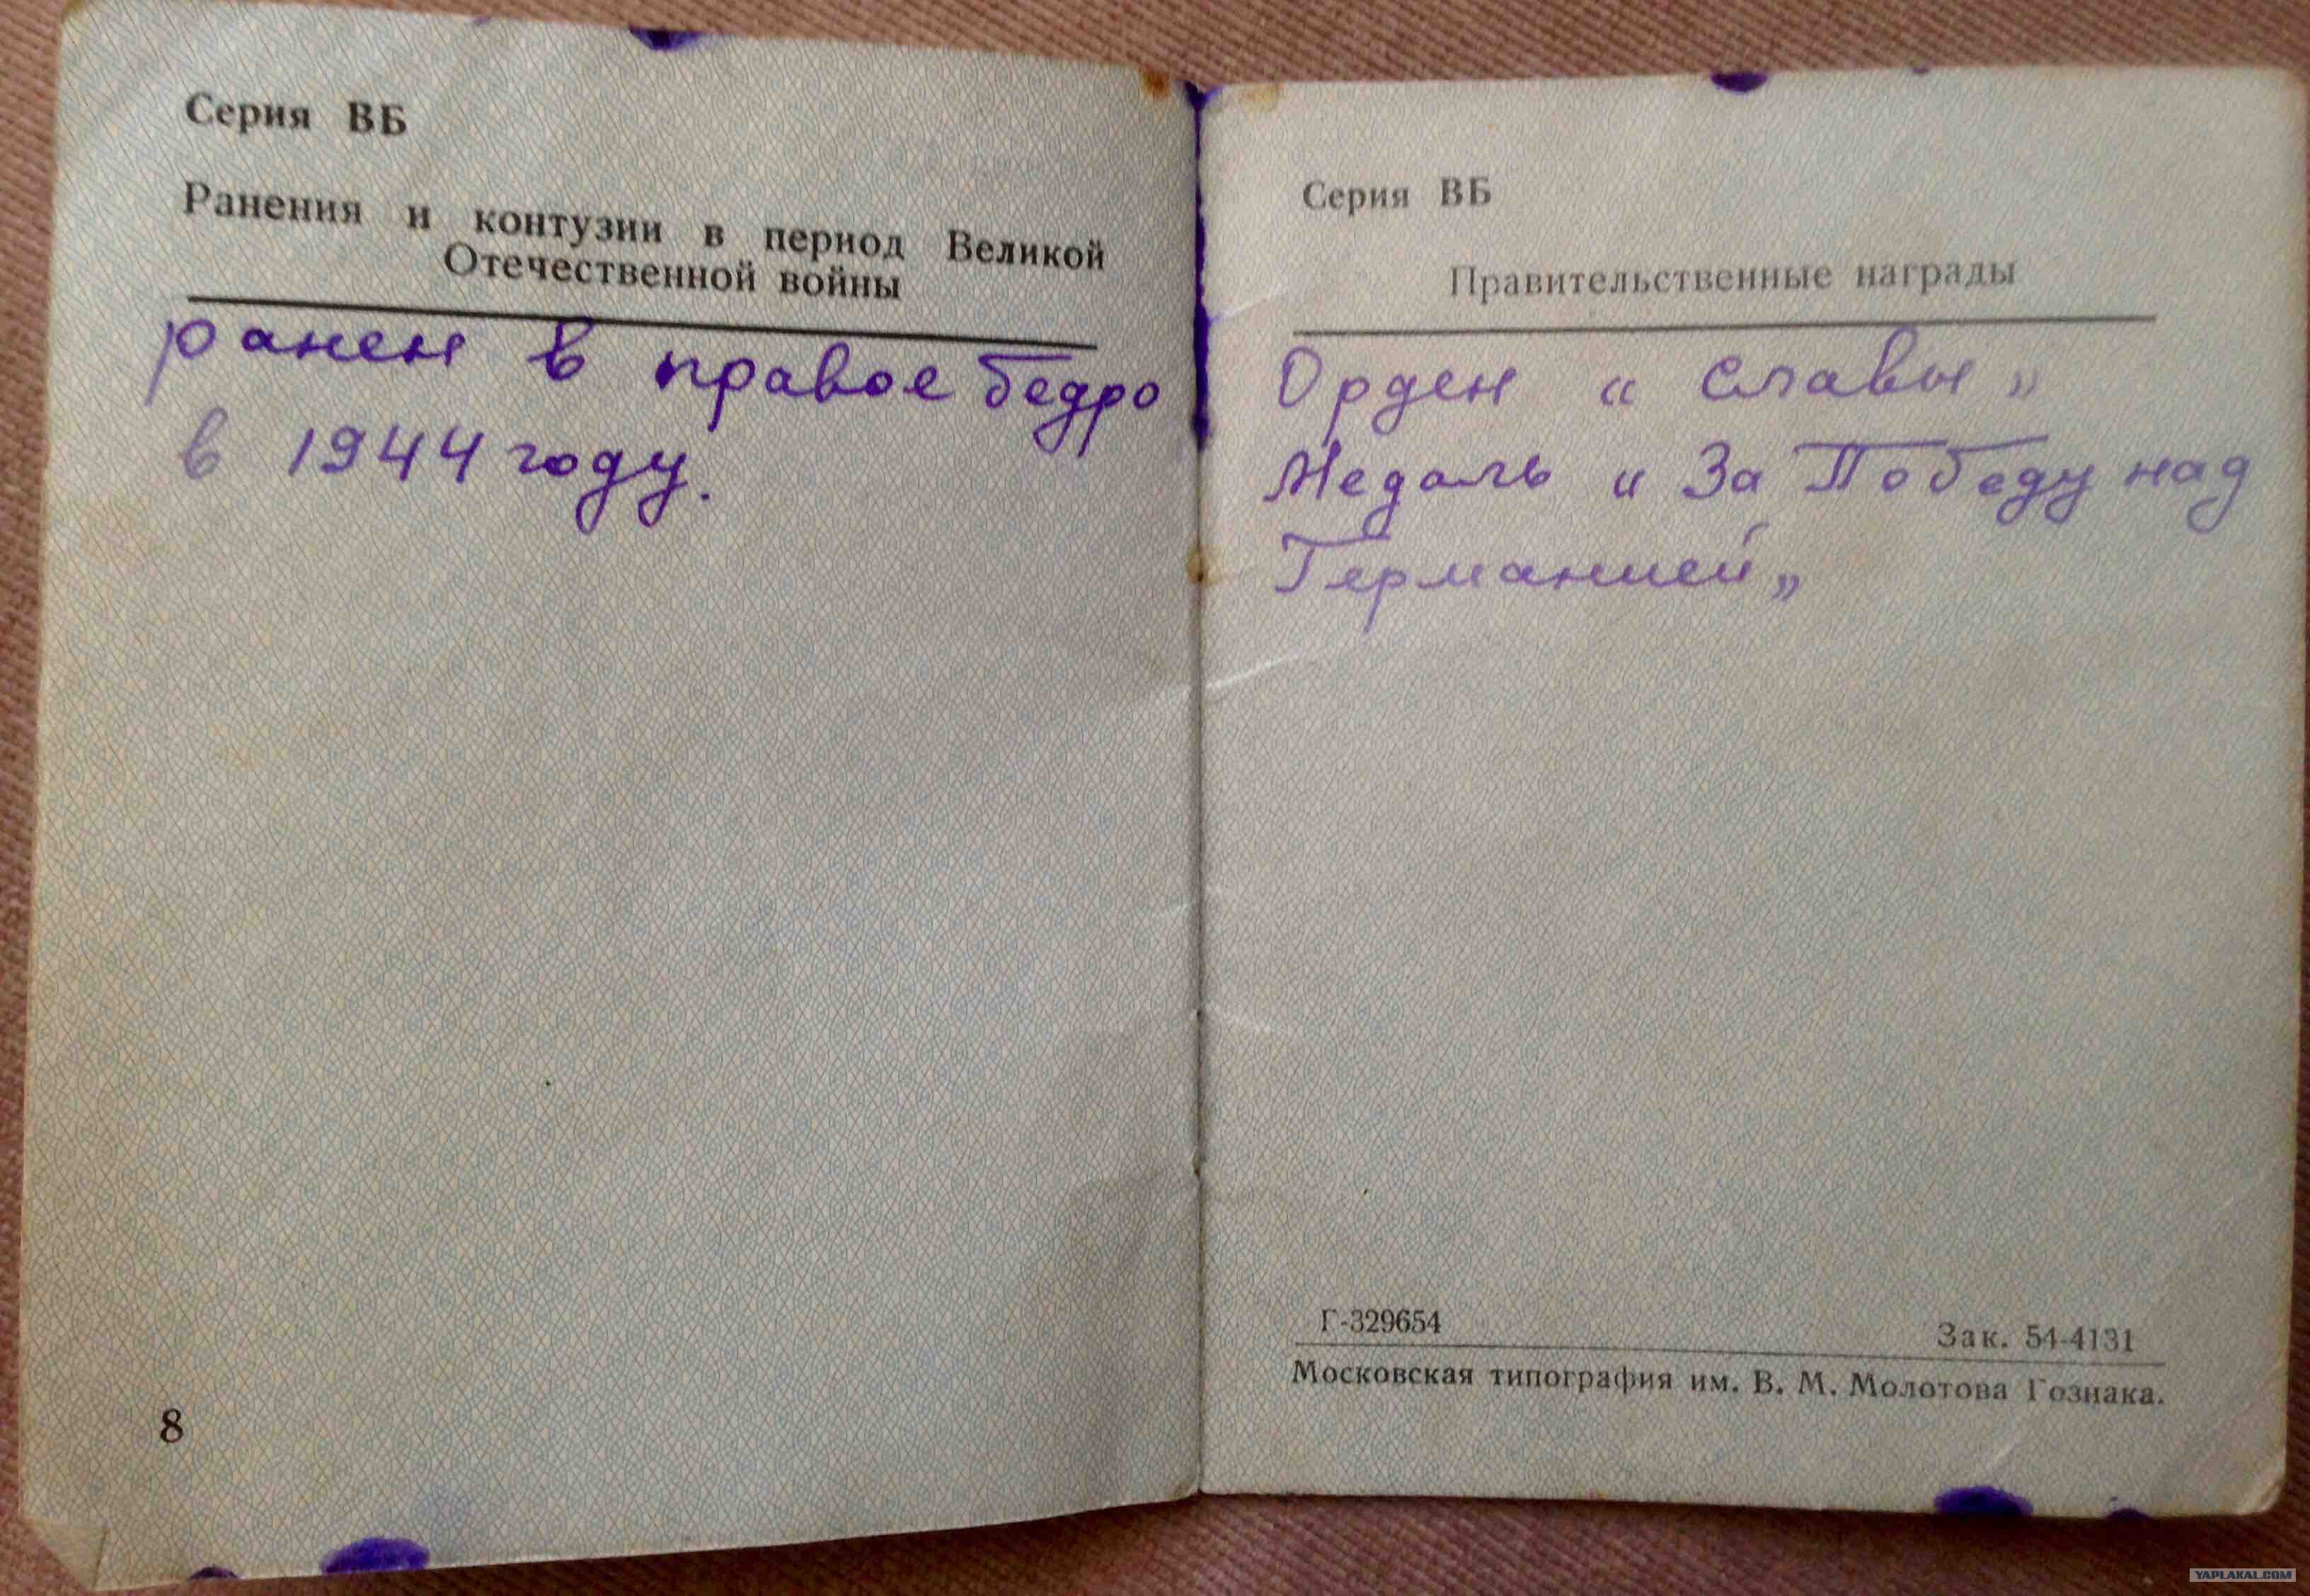 Серия ВБ
Ранения и контузии в период Великой
Отечественной войны
ранен в правое бедро
в 1944 году.
8
Серия ВБ
Правительственные награды
Орден " Славы "
Медаль " За Победу над
Германией "
Г-329654 Зак. 54-4131
Московская типография им. В. М. Молотова Гознака.
YAPLAKAL.COM